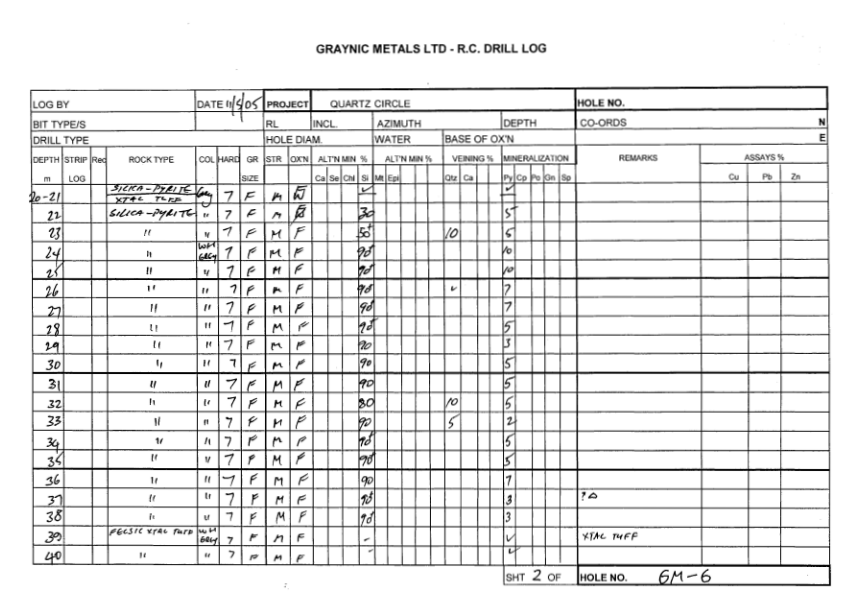 GRAYNIC METALS LTD - R.C. DRILL LOG
LOG BY DATE 11/5/05 PROJECT QUARTZ CIRCLE HOLE NO.
BIT TYPE/S RL INCL. AZIMUTH DEPTH CO-ORDS N
DRILL TYPE HOLE DIAM. WATER BASE OF OX'N E
DEPTH STRIP Rec ROCK TYPE COL HARD GR STR OX'N ALT'N MIN % ALT'N MIN % VEINING % MINERALIZATION REMARKS ASSAYS %
m LOG SIZE Ca Se Chl Si Mt Epi Qtz Ca Py Cp Po Gn Sp Cu Pb Zn
20-21 SILICA-PYRITE XTAL TUFF Grey 7 F M ✓ ✓
22 SILICA-PYRITE " 7 F M 30 5
23 " " 7 F M F 50+ 10 5
24 " WH GREY 7 F M F 90+ 10
25 " " 7 F M F 90+ 10
26 " " 7 F M F 90+ ✓ 7
27 " " 7 F M F 90+ 7
28 " " 7 F M F 90+ 5
29 " " 7 F M F 90 3
30 " " 7 F M F 90 5
31 " " 7 F M F 90 5
32 " " 7 F M F 80 10 5
33 " " 7 F M F 90 5 2
34 " " 7 F M F 90+ 5
35 " " 7 F M F 90+ 5
36 " " 7 F M F 90 7
37 " " 7 F M F 90+ 3
38 " " 7 F M F 90+ 3
39 FELSIC XTAL TUFF WH GREY 7 F M F - ✓ XTAL TUFF
40 " " 7 F M F - ✓
SHT 2 OF HOLE NO. GM-6